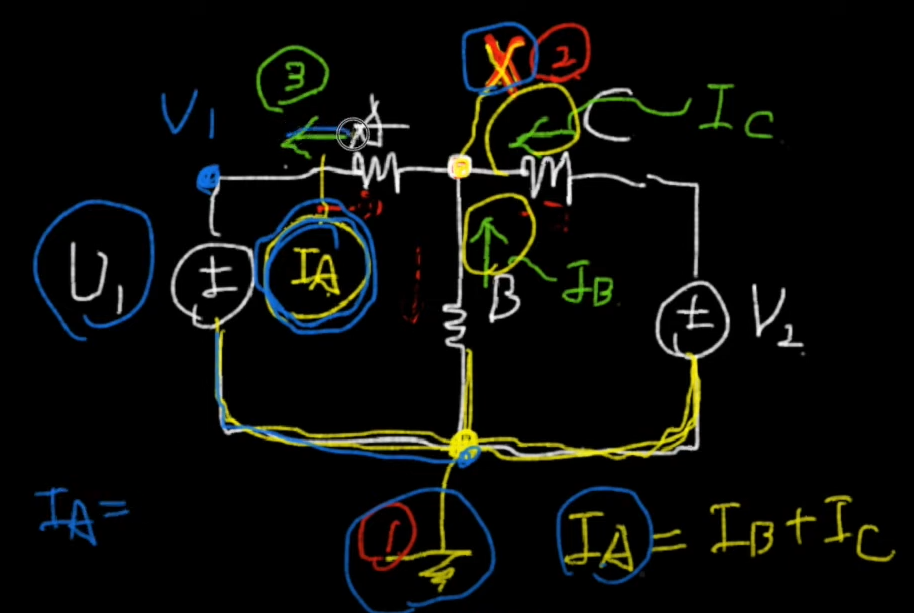 3
X 2
V1
A
C
IC
V1
±
IA
B
IB
±
V2
IA =
1
IA = IB + IC